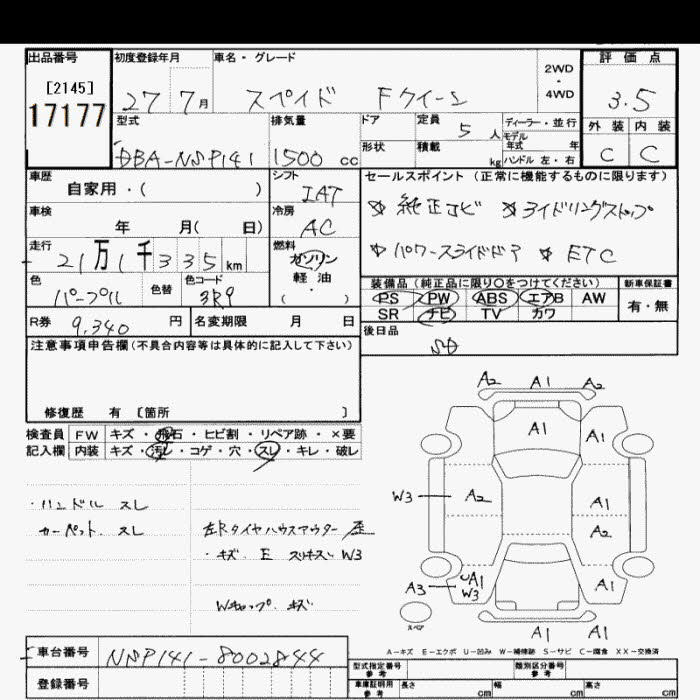 出品番号 初度登録年月 車名・グレード 2WD・4WD 評価点
[2145]
17177 27 7月 スペイド Fクイーン 3.5
型式 排気量 ドア 定員 5人 ディーラー・並行 外装 内装
モデル年式 年
DBA-NSP141 1500cc 形状 積載 kg ハンドル 左・右 C C
車歴 シフト セールスポイント(正常に機能するものに限ります)
自家用・( ) IAT
☆純正ナビ ☆アイドリングストップ
車検 冷房
年 月( 日) AC
走行 燃料 ☆パワースライドドア ☆ETC
21万1千335km ガソリン
軽油
・( )
色 色替 色コード 装備品(純正品に限り○をつけてください) 新車保証書
パープル 3R9 PS PW ABS エアB AW 有・無
R券 9,340円 名変期限 月 日 SR ナビ TV カワ
注意事項申告欄(不具合内容等は具体的に記入して下さい) 後日品
SD
修復歴 有 [箇所 ]
検査員 FW キズ・飛石・ヒビ割・リペア跡・×要
記入欄 内装 キズ・汚レ・コゲ・穴・スレ・キレ・破レ
A2 A1 A2
A1 A1
・ハンドル スレ W3 A2 A1
カーペット スレ 左Rタイヤハウスアウター 歪 A2
・キズ E スリキズ W3
A3 A1 W3 A1
Wキャップ キズ スペア
A1 A1
A-キズ E-エクボ U-凹み W-補修跡 S-サビ C-腐食 XX-交換済
車台番号 NSP141-8002844
型式指定番号 参考 類別区分番号 参考
登録番号 車庫証明用 参考 長さ cm 幅 cm 高さ cm